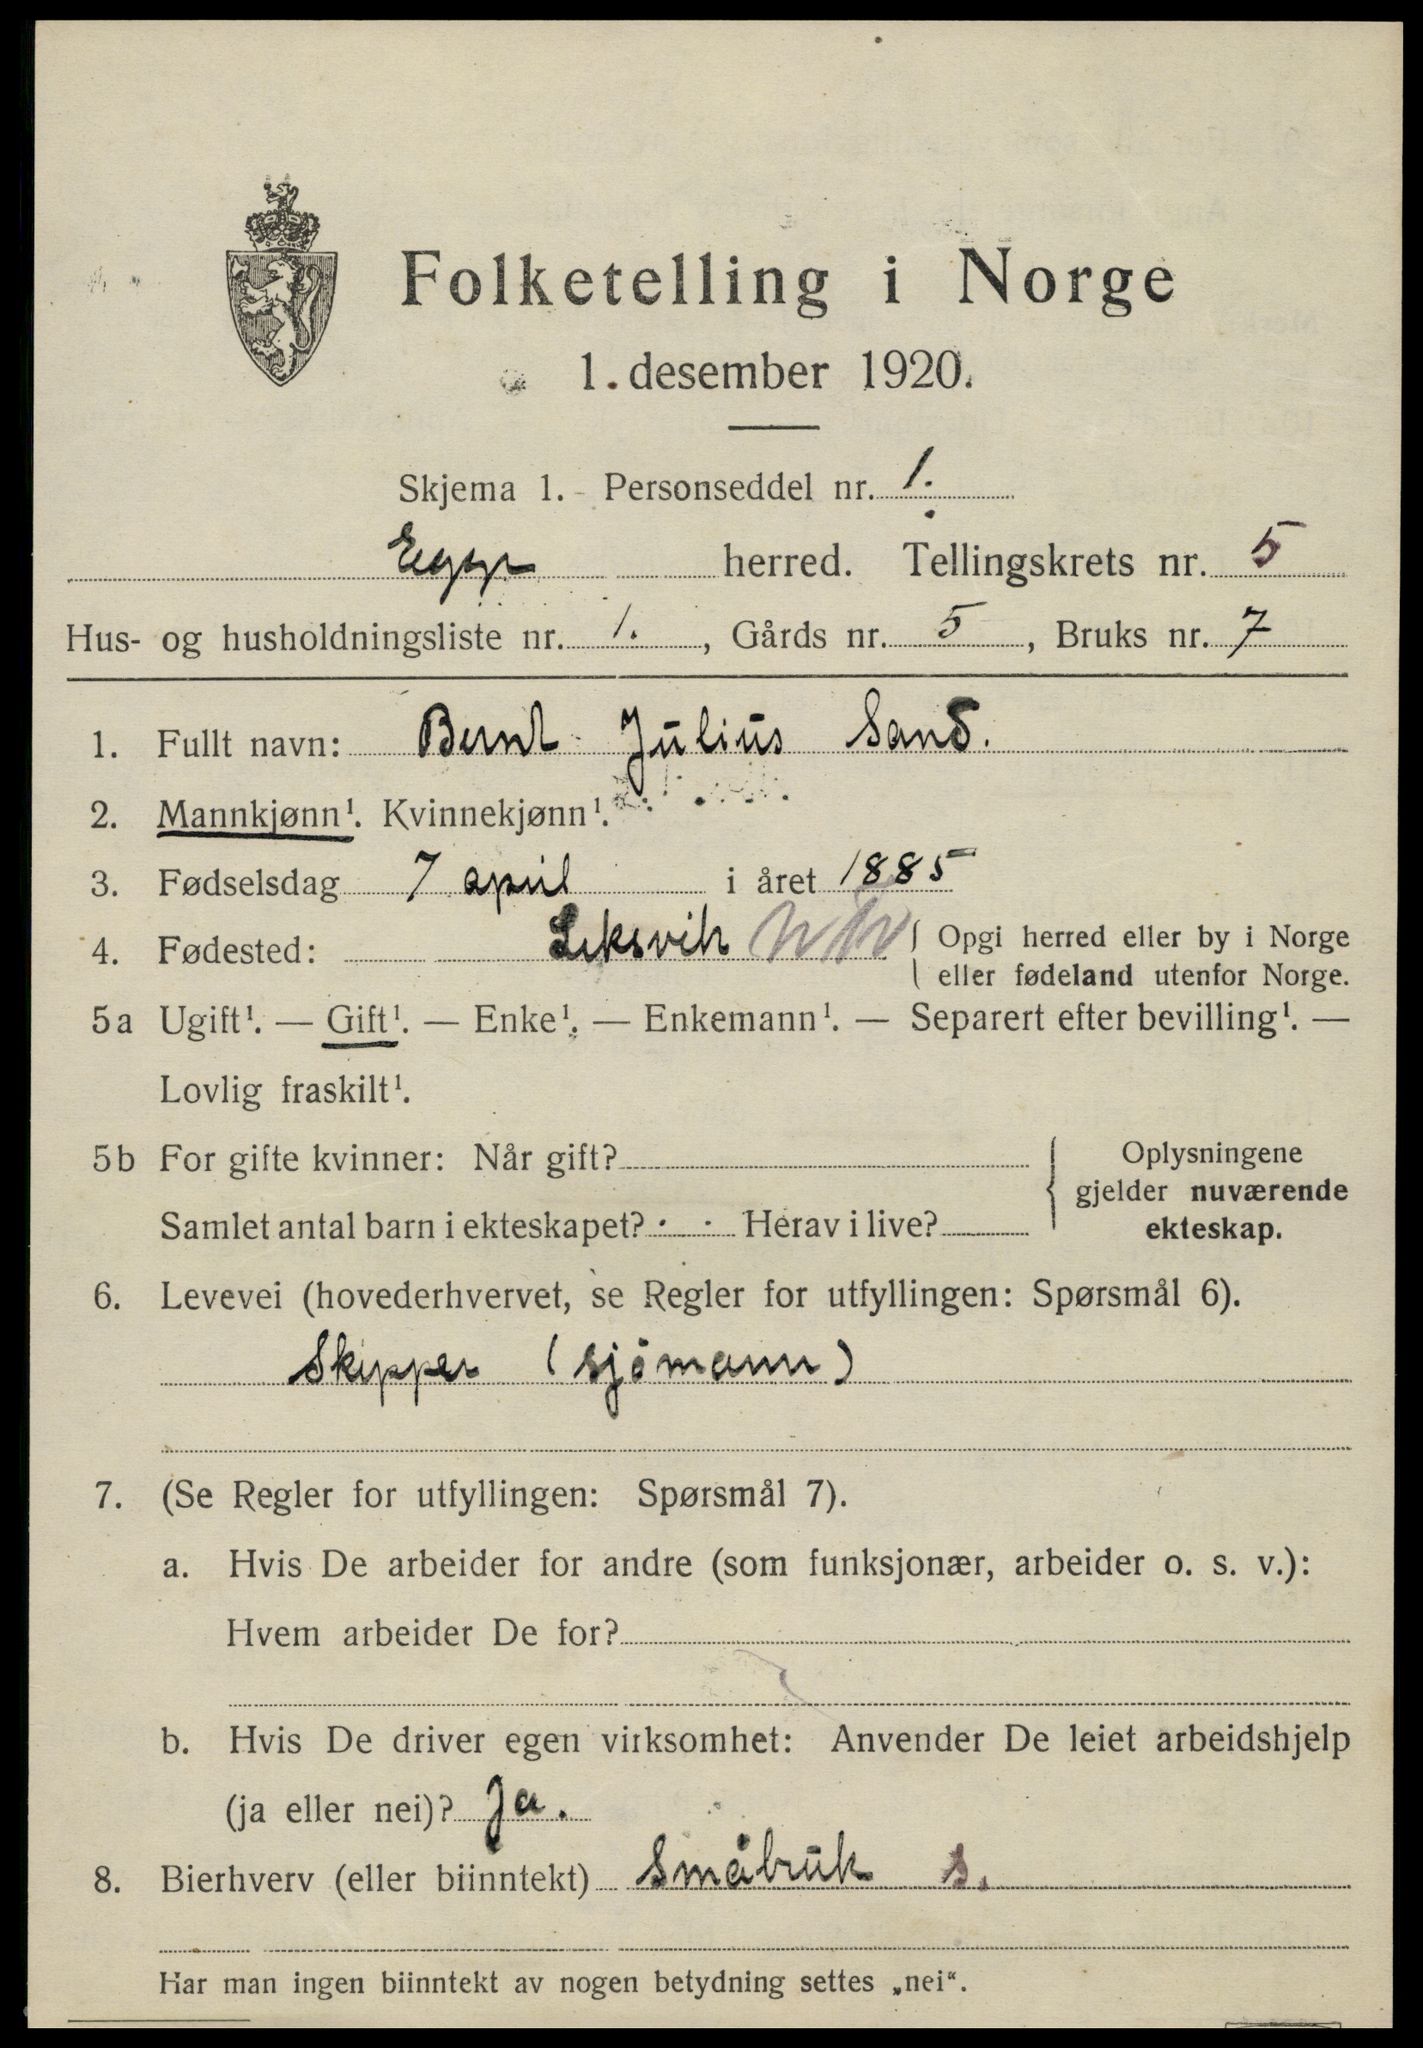 Folketelling i Norge
1. desember 1920.
Skjema 1. Personseddel nr. 1.
Egge herred. Tellingskrets nr. 5
Hus- og husholdningsliste nr. 1., Gårds nr. 5, Bruks nr. 7
1. Fullt navn: Bernt Julius Sand.
2. Mannkjønn¹. Kvinnekjønn¹.
3. Fødselsdag 7 april i året 1885
4. Fødested: Leksvik { Opgi herred eller by i Norge
eller fødeland utenfor Norge.
5a Ugift¹. — Gift¹. — Enke¹. — Enkemann¹. — Separert efter bevilling¹. —
Lovlig fraskilt¹.
5b For gifte kvinner: Når gift?
Samlet antal barn i ekteskapet? Herav i live?
{ Oplysningene
gjelder nuværende
ekteskap.
6. Levevei (hovederhvervet, se Regler for utfyllingen: Spørsmål 6).
Skipper (sjömann)
7. (Se Regler for utfyllingen: Spørsmål 7).
a. Hvis De arbeider for andre (som funksjonær, arbeider o. s. v.):
Hvem arbeider De for?
b. Hvis De driver egen virksomhet: Anvender De leiet arbeidshjelp
(ja eller nei)? Ja.
8. Bierhverv (eller biinntekt) Småbruk s.
Har man ingen biinntekt av nogen betydning settes „nei“.